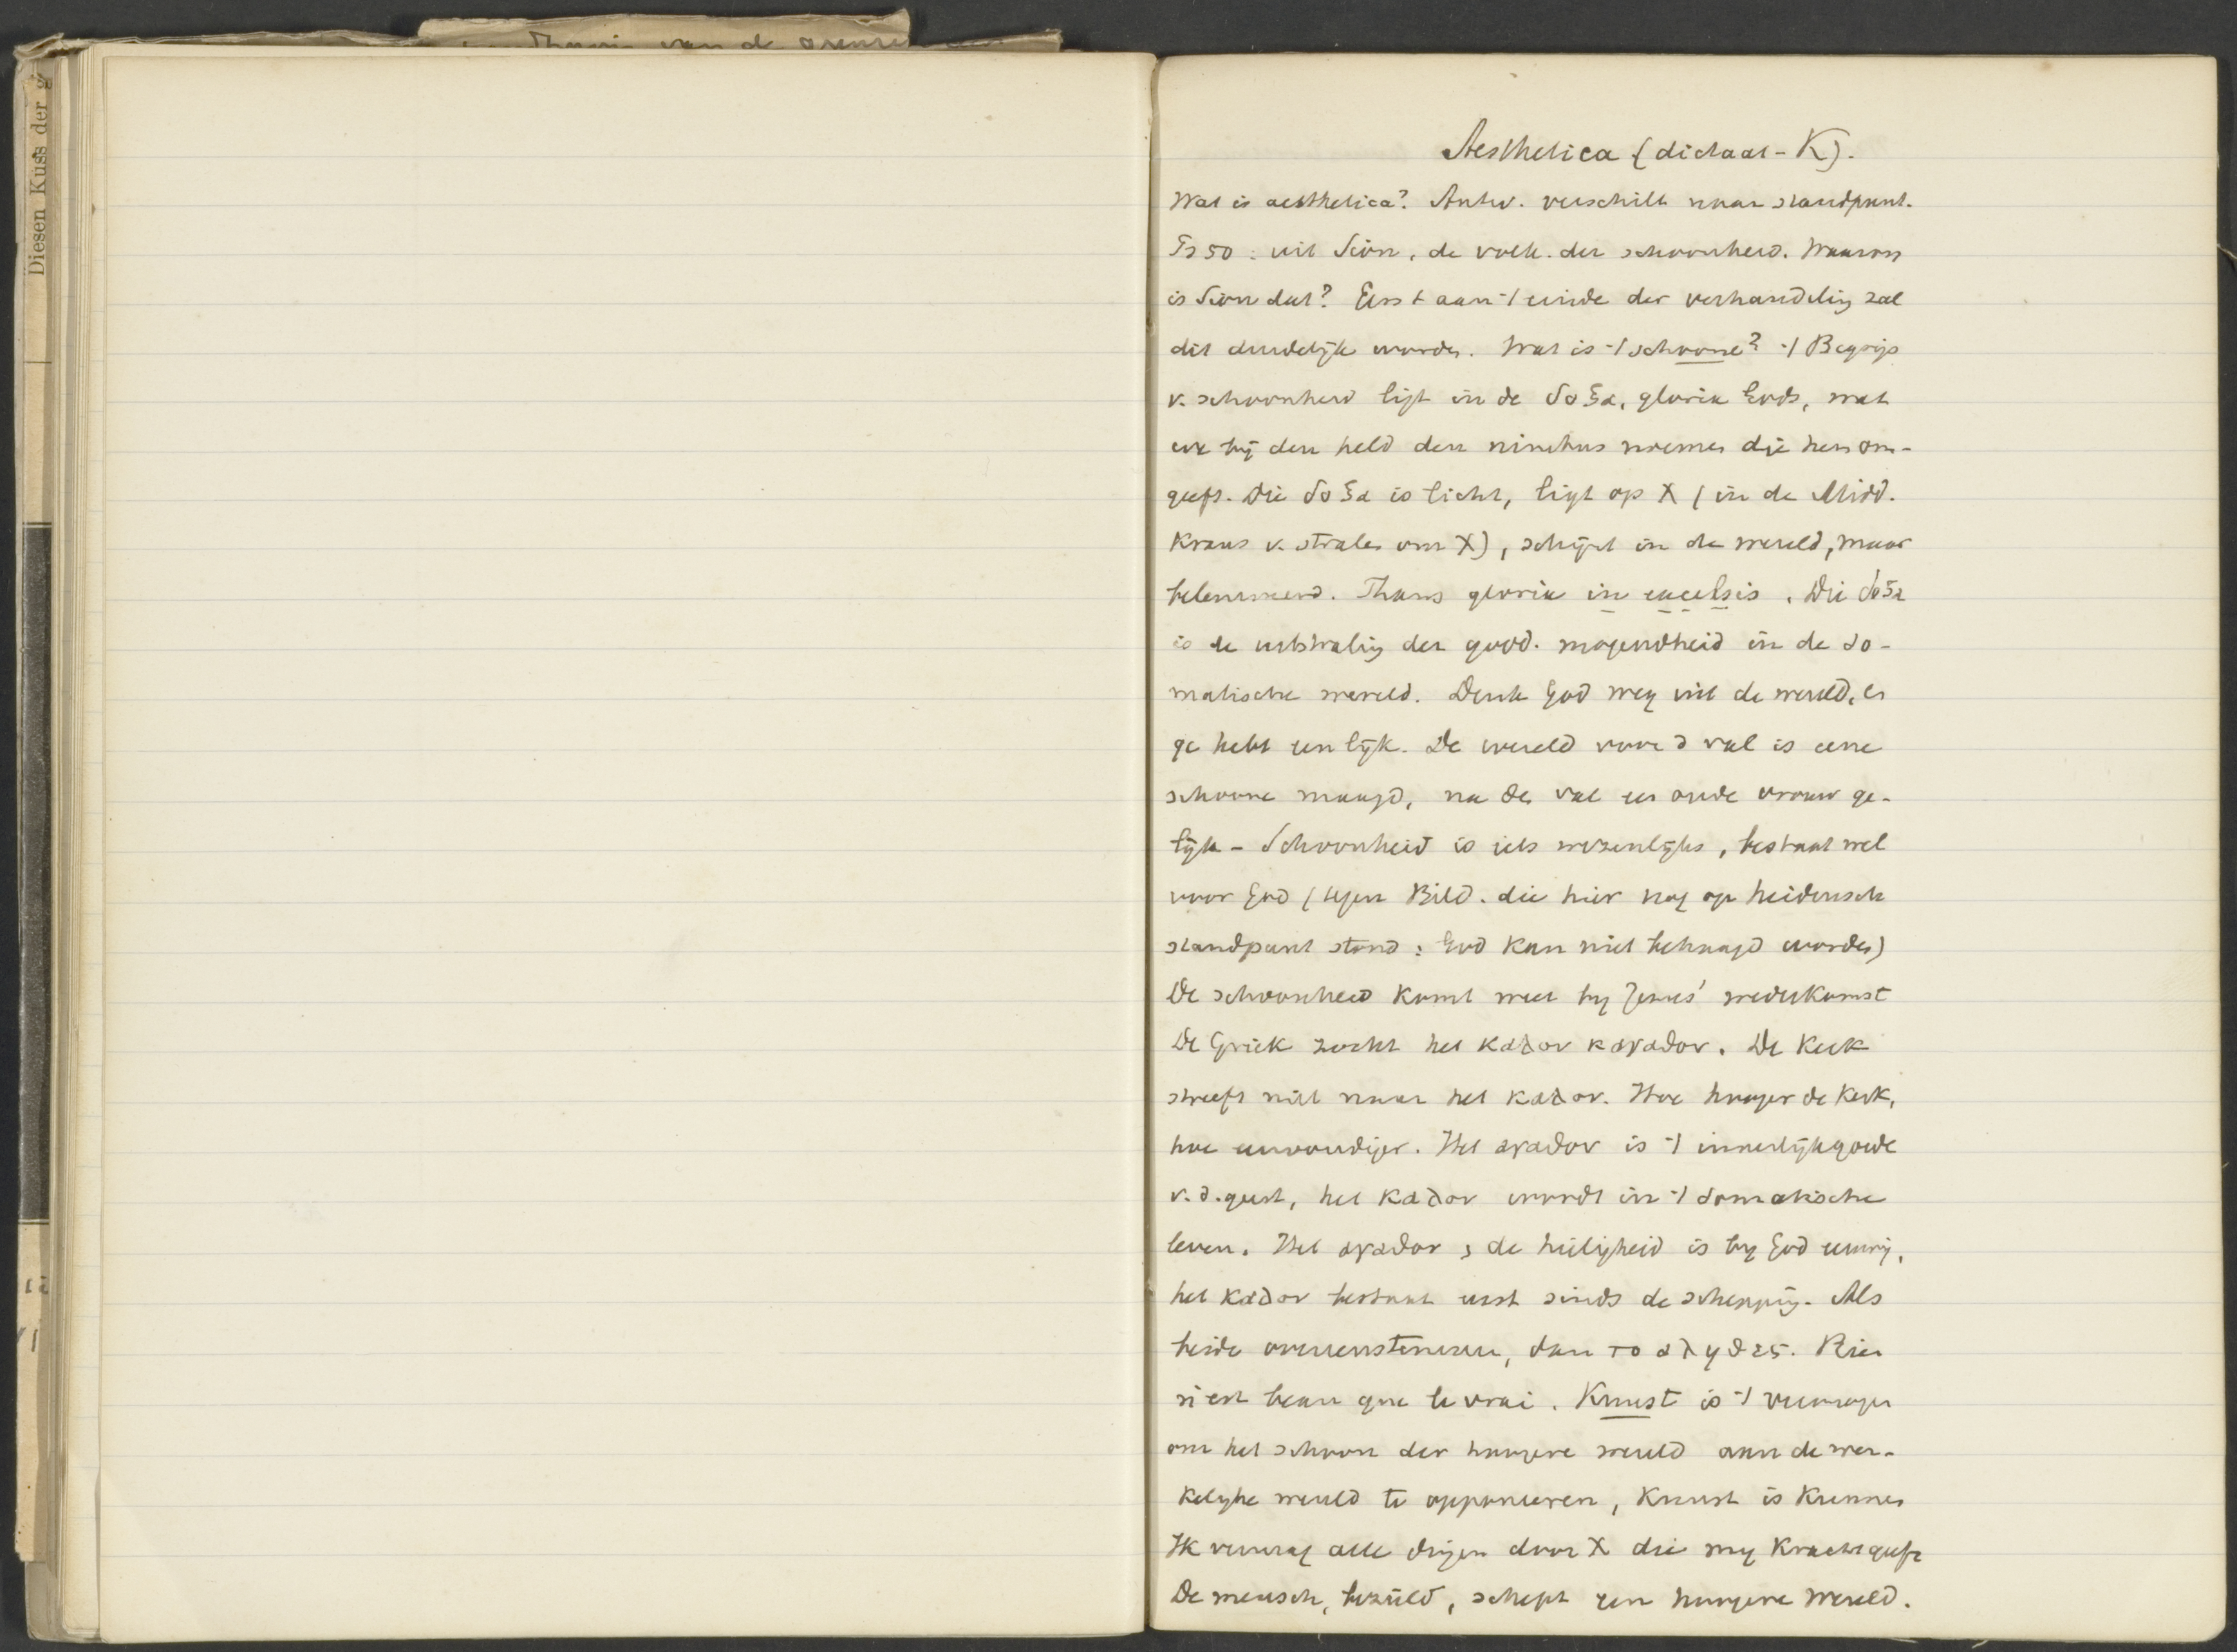 Diesen Kuss der g
van de grenze
Aesthetica (dictaat-K).
Wat is aesthetica? Antw. verschilt naar standpunt.
Ps 50: uit Sion, de volk. der schoonheid. Waarom
is Sion dat? Eerst aan 't einde der verhandeling zal
dit duidelijk worden. Wat is 't schoone? 't Begrip
v. schoonheid ligt in de δοξα, gloria Gods, wat
we bij den held den nimbus noemen die hem om-
geeft. Die δοξα is licht, ligt op X (in de Midd.
Kraus v. stralen om X), schijnt in de wereld, maar
belemmerd. Thans gloria in excelsis. Die δοξα
is de uitstraling der godd. mogendheid in de so-
matische wereld. Denk God weg uit de wereld, en
ge hebt een lijk. De wereld voor d val is eene
schoone maagd, na den val een oude vrouw ge-
lijk - Schoonheid is iets wezenlijks, bestaat wel
voor God (tegen Bild. die hier nog op heidensch
standpunt stond: God kan niet behaagd worden)
De schoonheid komt weer bij Jezus' wederkomst
De Griek zocht het καλον καγαθον. De Kerk
streeft niet naar het καλον. Hoe hooger de Kerk,
hoe eenvoudiger. Het αγαθον is 't innerlijk goede
v.d. geest, het καλον wordt in 't somatische
leven. Het αγαθον, de heiligheid is bij God eeuwig,
het καλον bestaat eerst sinds de schepping. Als
beide overeenstemmen, dan το αληθες. Rien
n'est beau que le vrai. Kunst is 't vermogen
om het schoon der hoogere wereld aan de wer-
kelijke wereld te opponeeren, Kunst is Kunnen
Ik vermag alle dingen door X die mij Kracht geeft
De mensch, bezield, schept een hoogere wereld.